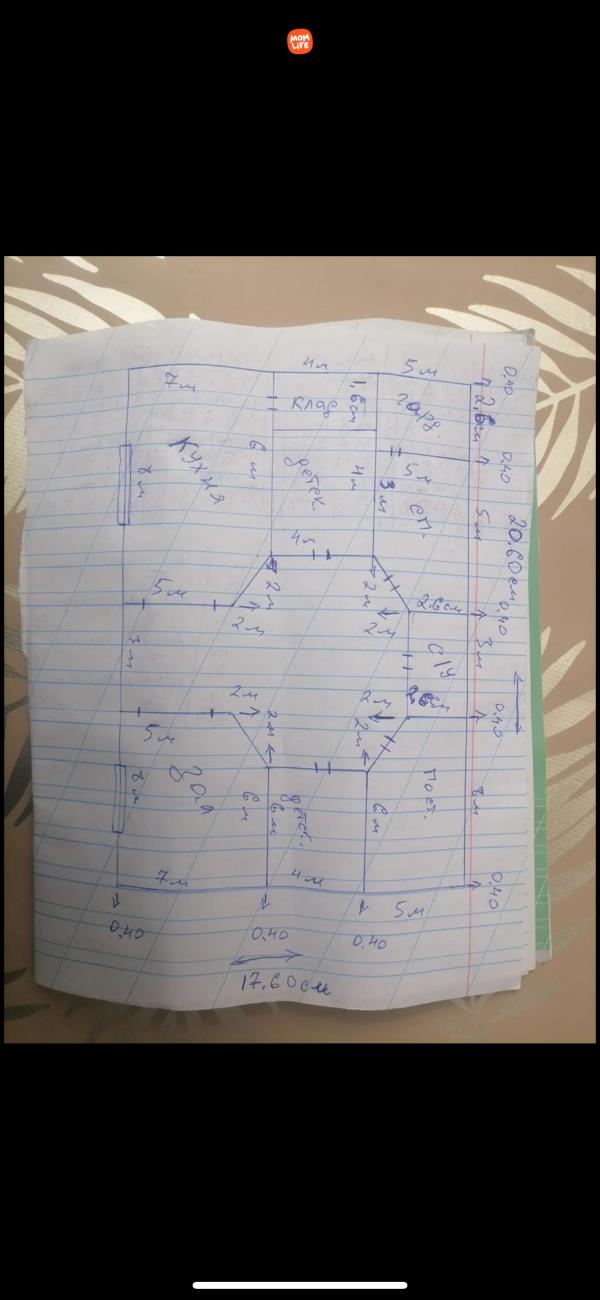 MOM
LIFE
4м
5м
0,40
7м
клад
1,6см
гард.
2,6м
0,40
Кухня
6м
детск.
4м
3м
5м
сп.
5м
20.60см
8м
4м
0,40
5м
2м
2м
2м
2м
2.6см
3м
3м
с/у
2м
2м
0.40
5м
2м
2м
8м
Зал
6м
детск.
6м
6м
Пост.
8м
7м
4м
5м
0,40
0,40
0.40
0.40
17.60см